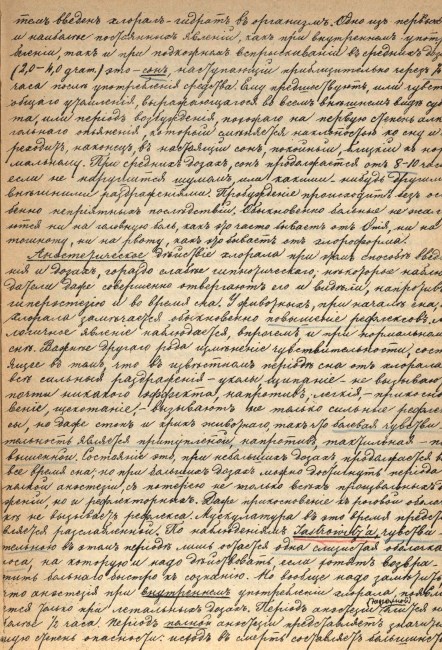 темъ введенъ хлоралъ-гидратъ въ организмъ. Одно изъ первыхъ
и наиболѣе постоянныхъ явленій, какъ при внутреннемъ употре-
бленіи, такъ и при подкожныхъ впрыскиваніи въ среднихъ доз
(2,0-4,0 грам.) это-сонъ, наступающій приблизительно черезъ
часа послѣ употребленія средства. Ему предшествуютъ, или чувство
общаго утомленія, выражающагося во всемъ внѣшнемъ видѣ субъек
та, или періодъ возбужденія, похожаго на первую степень алко-
гольнаго опьяненія, который смѣняется наклонностью ко сну и
реходитъ, наконецъ, въ настоящій сонъ, покойный, близкій къ нор
мальному. При среднихъ дозахъ, сонъ продолжается отъ 8-10 час
если не нарушится шумомъ, или какими нибудь другими
внѣшними раздраженіями. Пробужденіе происходитъ безъ ос
бенно непріятныхъ послѣдствій. Обыкновенно больные не жалу
ются ни на головную боль, какъ это часто бываетъ отъ опія, ни на
тошноту, ни на рвоту, какъ это бываетъ отъ хлороформа.
Анэстезическое дѣйствіе хлорала при томъ способѣ введе
нія и дозахъ, гораздо слабѣе гипнотическаго; нѣкоторые наблю
датели даже совершенно отвергаютъ его и видѣли, напротивъ
гиперэстезію и во время сна. У животныхъ, при началѣ сна
хлорала замѣчается обыкновенно повышеніе рефлексовъ,
логичное явленіе наблюдается, впрочемъ и при нормальномъ
снѣ. Важнѣе другаго рода измѣненіе чувствительности, сос
ящее въ томъ, что въ извѣстномъ періодѣ сна отъ хлорала
всѣ сильныя раздраженія-уколы щипаніе-не вызываютъ
почти никакого эффекта, напротивъ, легкія-прикосно
веніе, щекотаніе,-вызываютъ не только сильные рефлек
сы, но даже стонъ и крикъ животнаго такъ что болевая чувстви
тельность является притупленной, напротивъ, тактильная-по
вышенной. Состояніе это, при небольшихъ дозахъ продолжается во
все время сна, но при большихъ дозахъ можно достигнуть періода
полной анэстезіи, съ потерею не только всѣхъ произвольныхъ д
женій, но и рефлекторныхъ. Даже прикосновеніе къ роговой оболоч
кѣ не вызываетъ рефлекса. Мускулатура въ это время предст
вляется разслабленной. По наблюденіямъ чувстви
тельною въ этомъ періодѣ лишь остается одна слизистая оболочка
носа, на которую и надо дѣйствовать, если хотятъ возвра
тить больнаго быстро къ сознанію. Но вообще надо замѣтить
что анэстезія при внутреннемъ употребленіи хлорала, появля
ется только при летальныхъ дозахъ. Періодъ анэстезіи длится не
болѣе ½ часа. Періодъ полной анэстезіи представляетъ значитель
ную степень опасности: исходъ въ смерть составляетъ большинст